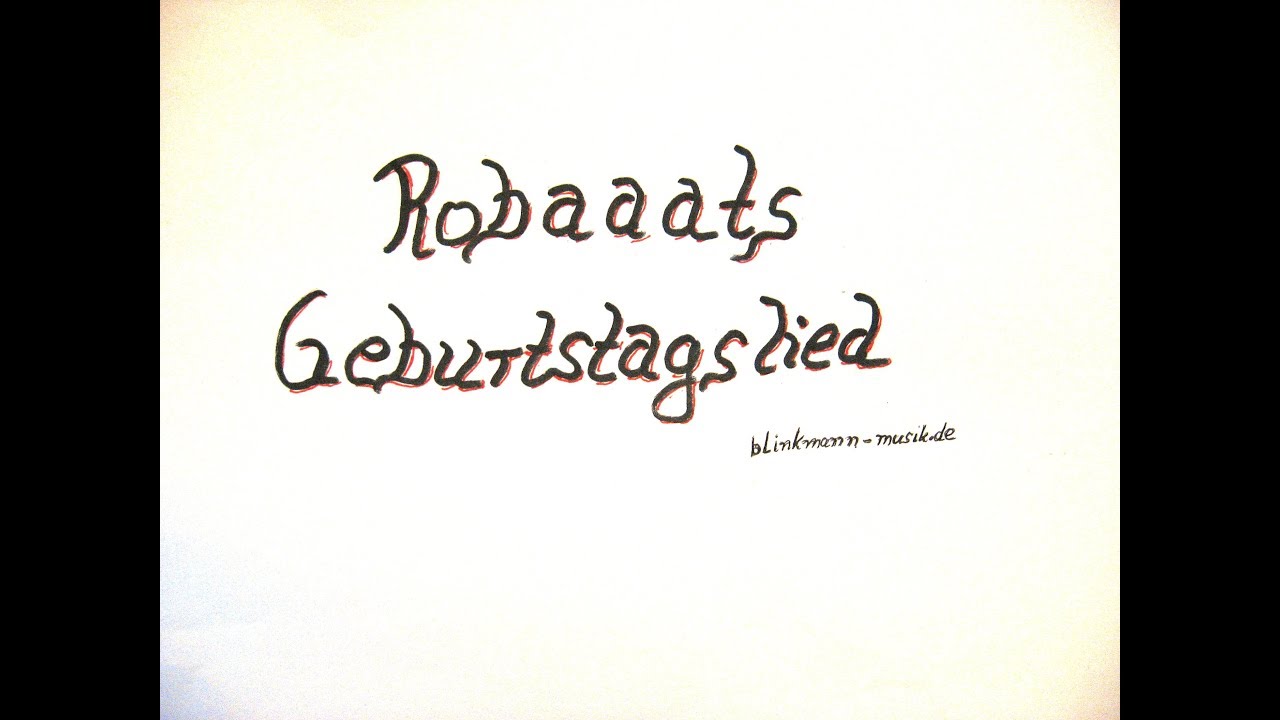 Robaaats
Geburtstagslied
blinkmann-musik.de